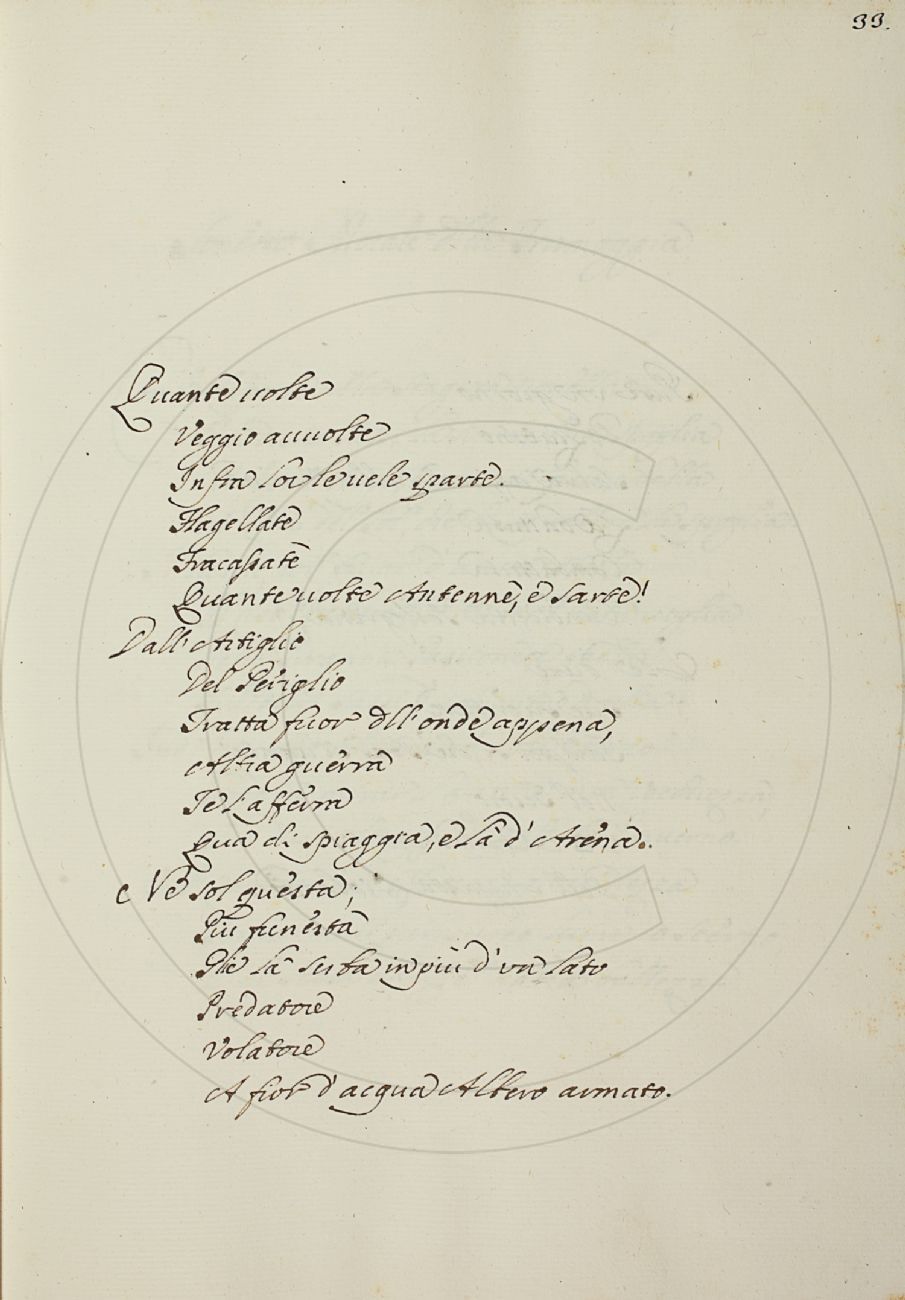 33.
Quante volte
Veggio avvolte
Infra lor le vele sparte.
Flagellate
Fracassate
Quante volte Antenne, e Sarte!
Dall' Artiglio
Del Periglio
Tratta fuor dll' onde appena,
Altra guerra
Te l'afferra
Qua di spiaggia, e là d' Arena.
Ne' sol questa;
Più funesta
Gliè la serba in più d' un lato
Predatore
Volatore
A fior d' acqua Albero armato.